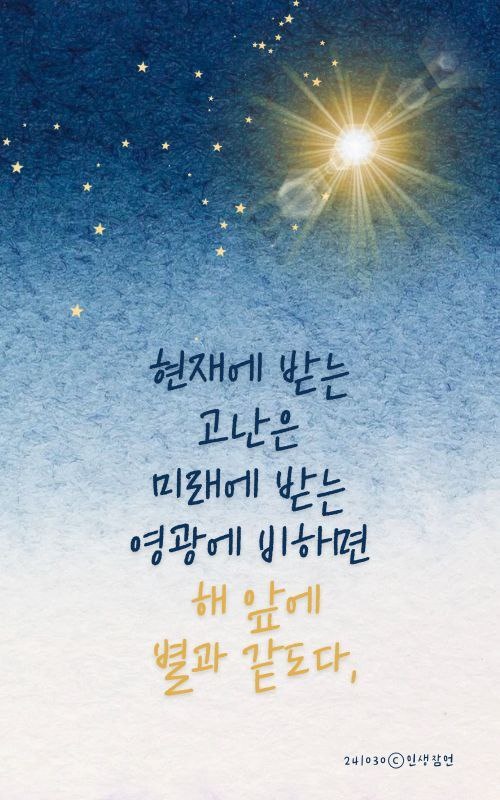 현재에 받는
고난은
미래에 받는
영광에 비하면
해 앞에
별과 같도다,
241030ⓒ인생잠언